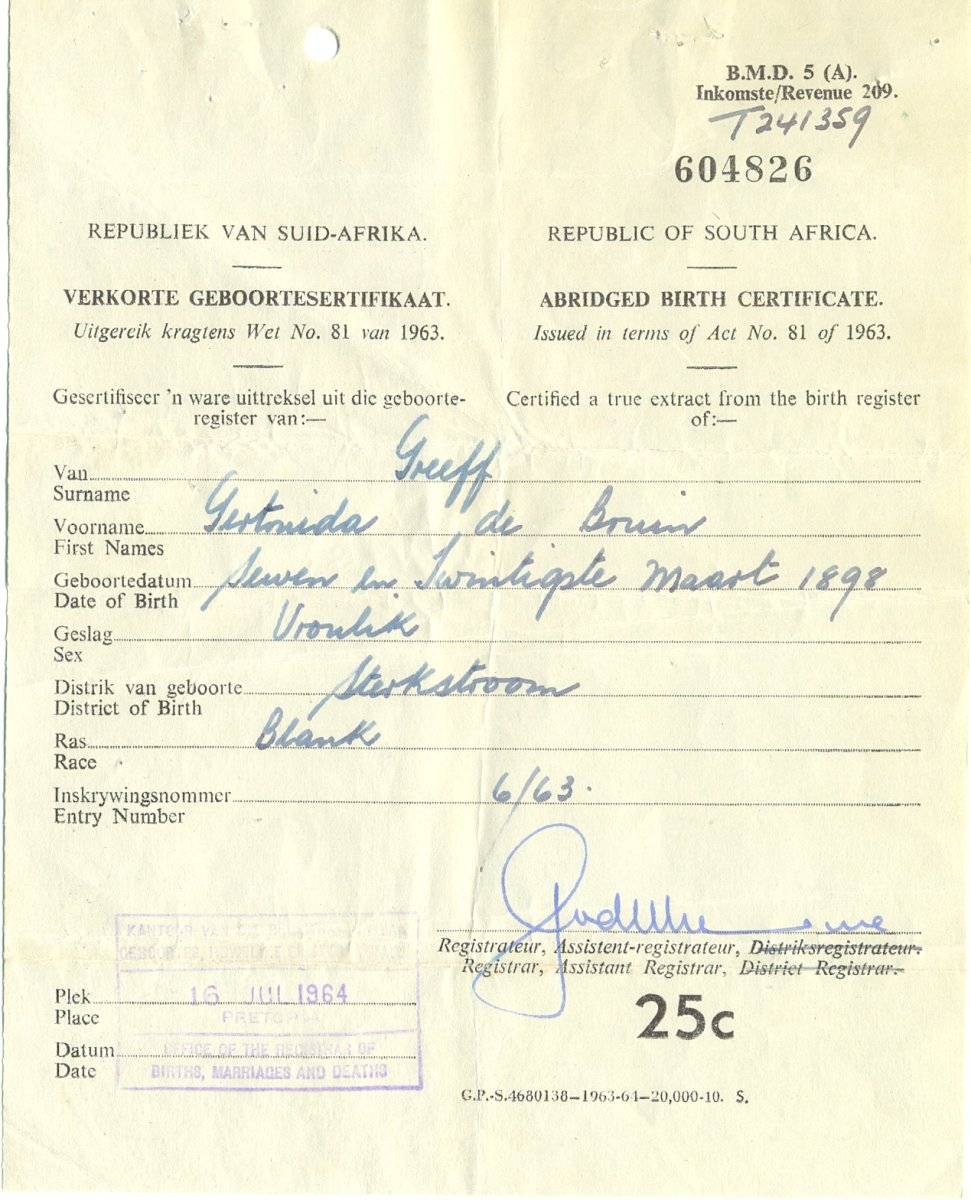 B.M.D. 5 (A).
Inkomste/Revenue 209.
T241359
604826
REPUBLIEK VAN SUID-AFRIKA.
REPUBLIC OF SOUTH AFRICA.
VERKORTE GEBOORTESERTIFIKAAT.
ABRIDGED BIRTH CERTIFICATE.
Uitgereik kragtens Wet No. 81 van 1963.
Issued in terms of Act No. 81 of 1963.
Gesertifiseer 'n ware uittreksel uit die geboorte-
register van:—
Certified a true extract from the birth register
of:—
Van Greeff
Surname
Voorname Gertruida de Bruin
First Names
Geboortedatum Sewen en Twintigste Maart 1898
Date of Birth
Geslag Vroulik
Sex
Distrik van geboorte Sterkstroom
District of Birth
Ras Blank
Race
Inskrywingsnommer 6/63.
Entry Number
Registrateur, Assistent-registrateur, Distriksregistrateur.
Registrar, Assistant Registrar, District Registrar.
KANTOOR VAN DIE
Plek 16 JUL 1964
Place PRETORIA
25c
Datum OFFICE OF THE REGISTRAR OF
Date BIRTHS, MARRIAGES AND DEATHS
G.P.-S.4680138—1963-64—20,000-10. S.